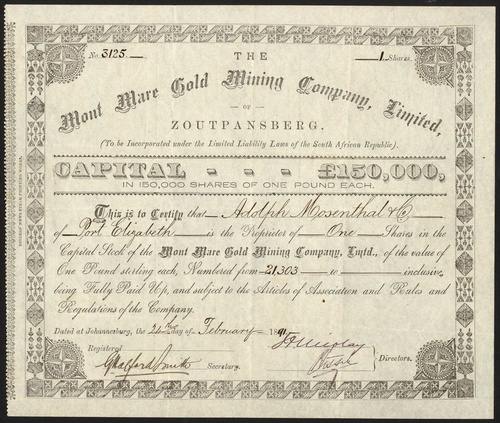 No. 3125
1 Shares.
THE
Mont Mare Gold Mining Company, Limited,
OF
ZOUTPANSBERG.
(To be Incorporated under the Limited Liability Laws of the South African Republic).
CAPITAL - - - £150,000,
IN 150,000 SHARES OF ONE POUND EACH.
This is to Certify that Adolph Mosenthal & Co
of Port Elizabeth is the Proprietor of One Shares in the
Capital Stock of the Mont Mare Gold Mining Company, Lmtd., of the value of
One Pound sterling each, Numbered from 21303 to inclusive,
being Fully Paid Up, and subject to the Articles of Association and Rules and
Regulations of the Company.
Dated at Johannesburg, the day of February 1891
Registered
Secretary.
Directors.